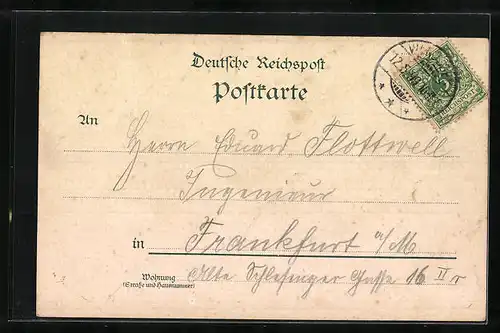 Deutsche Reichspost
Postkarte
An
Herrn Eduard Flottwell
Ingenieur
in Frankfurt a/M
Wohnung
(Straße und Hausnummer)
Alte Schlesinger Gasse 16 II r